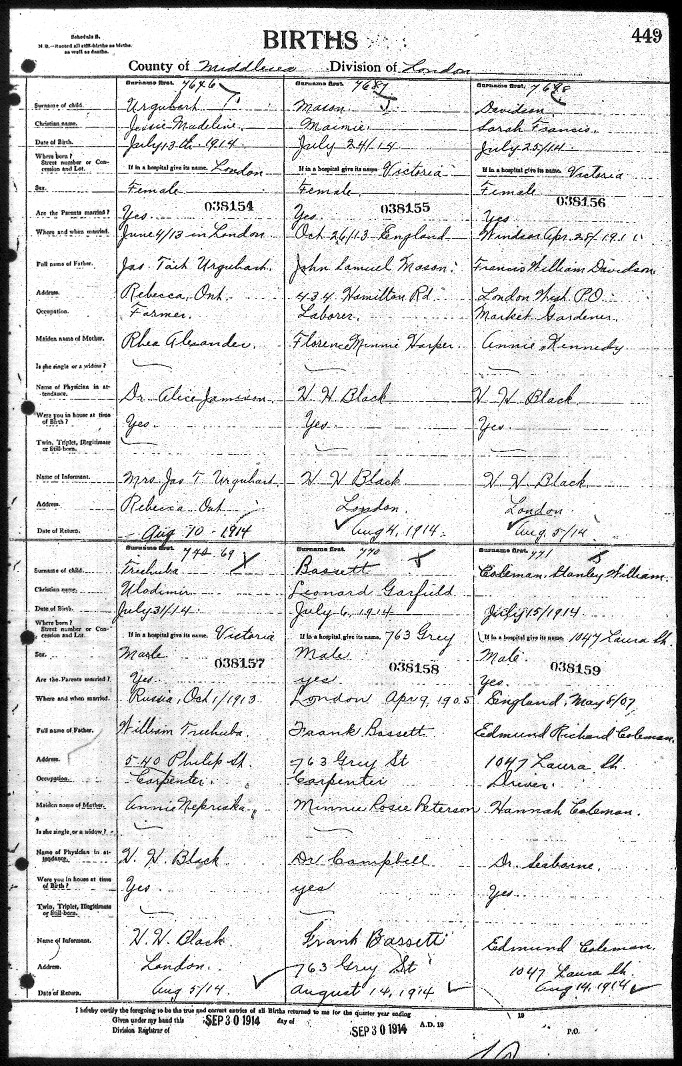 Schedule B.
N. B.—Record all still-births as births.
as well as deaths.
BIRTHS
449
County of Middlesex Division of London
Surname first. 7646 Surname first. 7687 Surname first. 7688
Surname of child. Urquhart Mason Davidson
Christian name. Jessie Madeline. Maimie. Sarah Francis.
Date of Birth. July 13th 1914 July 24/14 July 25/14
Where born?
Street number or Con-
cession and Lot. If in a hospital give its name. London If in a hospital give its name Victoria If in a hospital give its name Victoria
Sex. Female Female Female
038154 038155 038156
Are the Parents married? Yes. Yes. Yes
Where and when married. June 4/13 in London Oct 26/13 England Windsor Apr. 28/1911
Full name of Father. Jas. Tait Urquhart. John Samuel Mason. Francis William Davidson
Address. Rebecca, Ont. 434 Hamilton Rd London West P.O.
Occupation. Farmer. Laborer. Market Gardener.
Maiden name of Mother. Rhea Alexander. Florence Minnie Harper. Annie Kennedy
Is she single or a widow?
Name of Physician in at-
tendance. Dr. Alice Jamison. W. W. Black W. W. Black
Were you in house at time
of Birth? Yes. Yes. Yes.
Twin, Triplet, Illegitimate
or Still-born.
Name of Informant. Mrs. Jas T. Urquhart. W W Black W. W. Black
Address. Rebecca Ont London. London
Date of Return. Aug 10 - 1914 Aug 4, 1914. Aug. 5/14
Surname first. 69 Surname first. 770 Surname first. 771
Surname of child. Trehuba Bassett Coleman. Stanley William.
Christian name. Wlodimir Leonard Garfield
Date of Birth. July 31/14. July 6, 1914 July 15/1914.
Where born?
Street number or Con-
cession and Lot. If in a hospital give its name. Victoria If in a hospital give its name. 763 Grey If in a hospital give its name. 1047 Laura St.
Sex. Male Male Male
038157 038158 038159
Are the Parents married? Yes. yes Yes.
Where and when married. Russia, Oct 1/1913 London Apr 9, 1905 England, May 8/07
Full name of Father. William Trehuba. Frank Bassett Edmund Richard Coleman.
Address. 540 Philip St. 763 Grey St 1047 Laura St.
Occupation. Carpenter. Carpenter Driver.
Maiden name of Mother. Annie Minnie Rosie Peterson Hannah Coleman.
Is she single, or a widow?
Name of Physician in at-
tendance. W. W. Black Dr Campbell Dr. Seaborne.
Were you in house at time
of Birth? Yes. yes Yes.
Twin, Triplet, Illegitimate
or Still-born.
Name of Informant. W. W. Black Frank Bassett Edmund Coleman.
Address. London. 763 Grey St 1047 Laura St.
Date of Return. Aug 5/14 August 14, 1914 Aug 14, 1914
I hereby certify the foregoing to be the true and correct entries of all Births returned to me for the quarter year ending 19
Given under my hand this SEP 30 1914 day of SEP 30 1914 A.D. 19
Division Registrar of P.O.